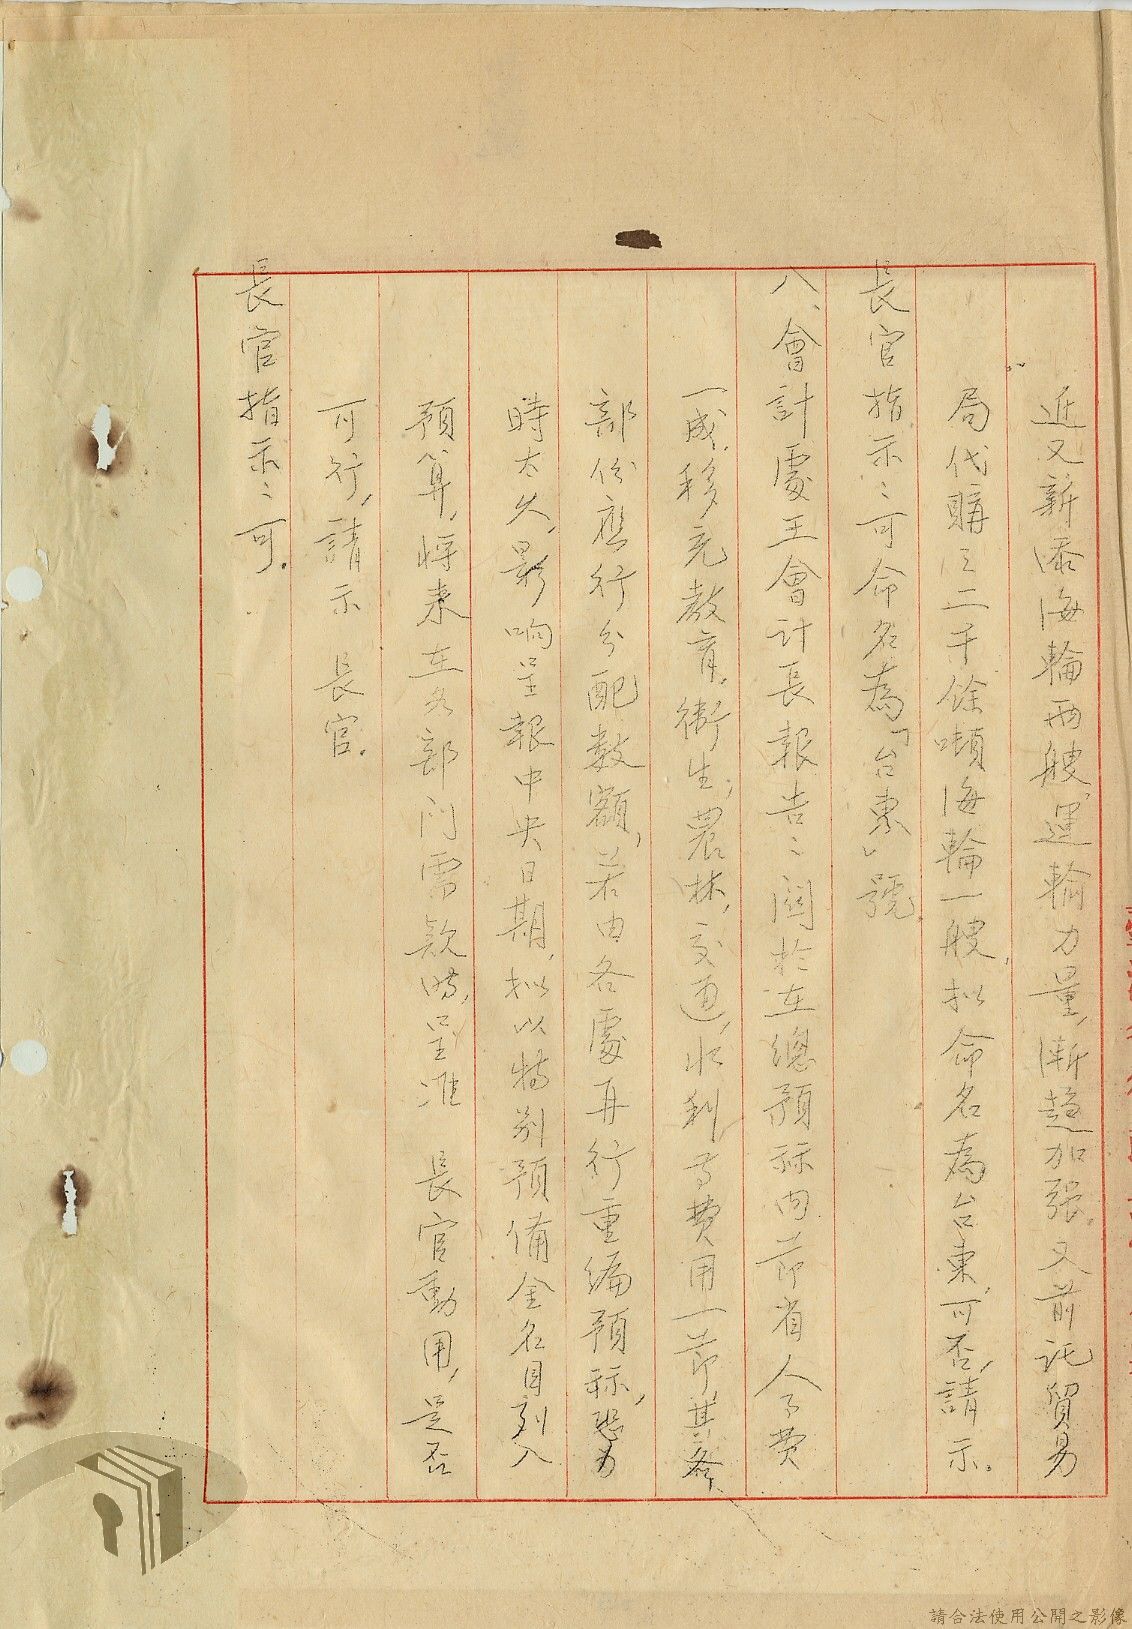 近又新添海輪兩艘，運輸力量，漸趨加强。又前託貿易
局代購之二千餘噸海輪一艘，拟命名為台東，可否，請示。
長官指示：可命名為「台東」號。
八、會計處王會計長報告：關於在總預祘內節省人事費
一成，移充教育、衛生、農林、交通、水利等費用一節，其各
部份應行分配數額，若由各處再行重編預祘，恐為
時太久，影响呈報中央日期，拟以特别預備金名目列入
預算，将来在各部门需款時，呈准 長官動用，是否
可行，請示 長官。
長官指示：可。
請合法使用公開之影像